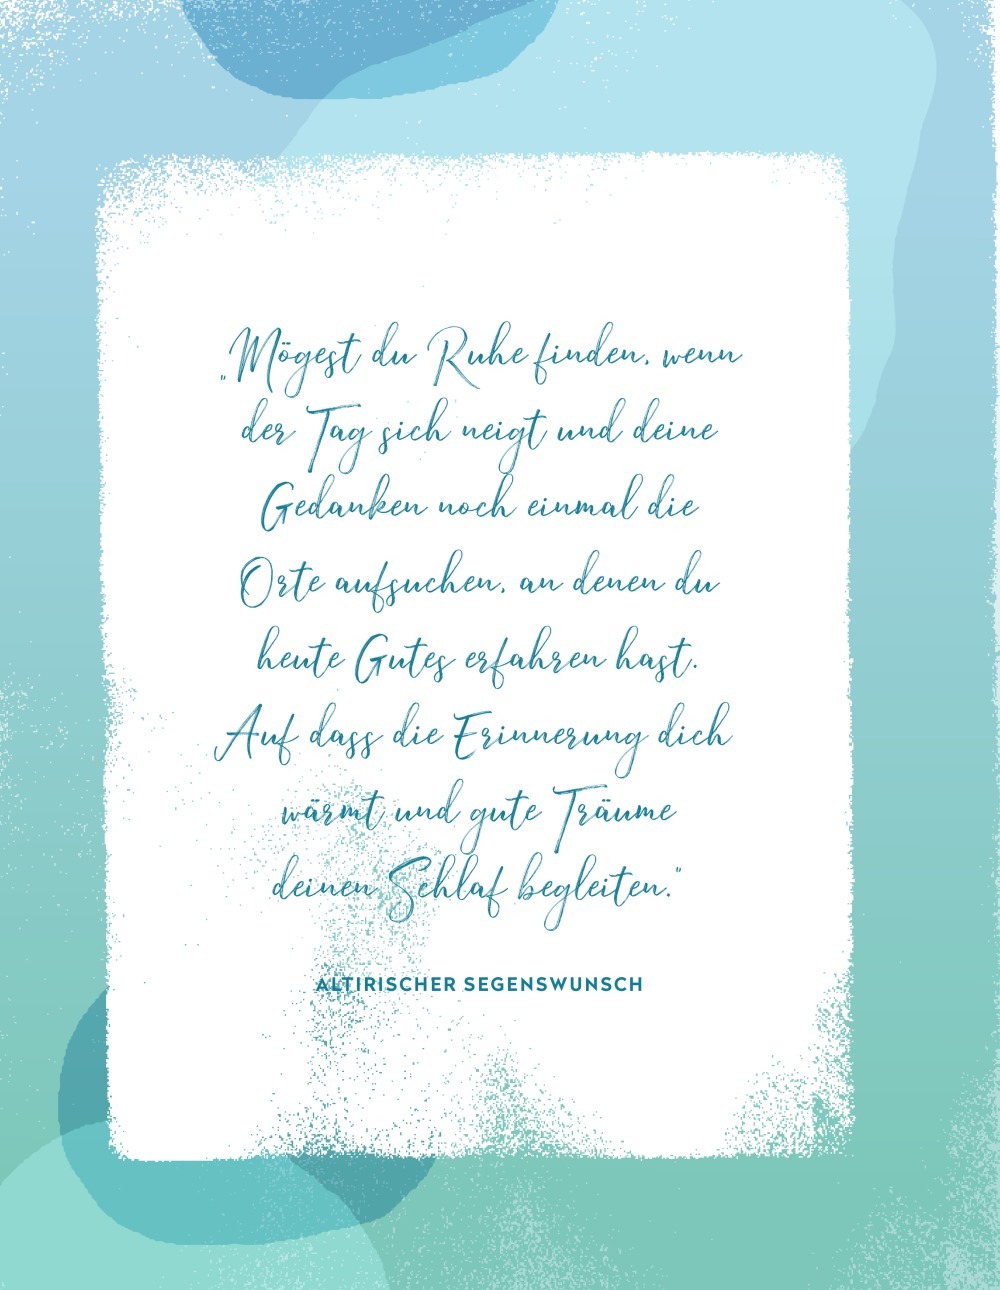 „Mögest du Ruhe finden, wenn
der Tag sich neigt und deine
Gedanken noch einmal die
Orte aufsuchen, an denen du
heute Gutes erfahren hast.
Auf dass die Erinnerung dich
wärmt und gute Träume
deinen Schlaf begleiten."
ALTIRISCHER SEGENSWUNSCH